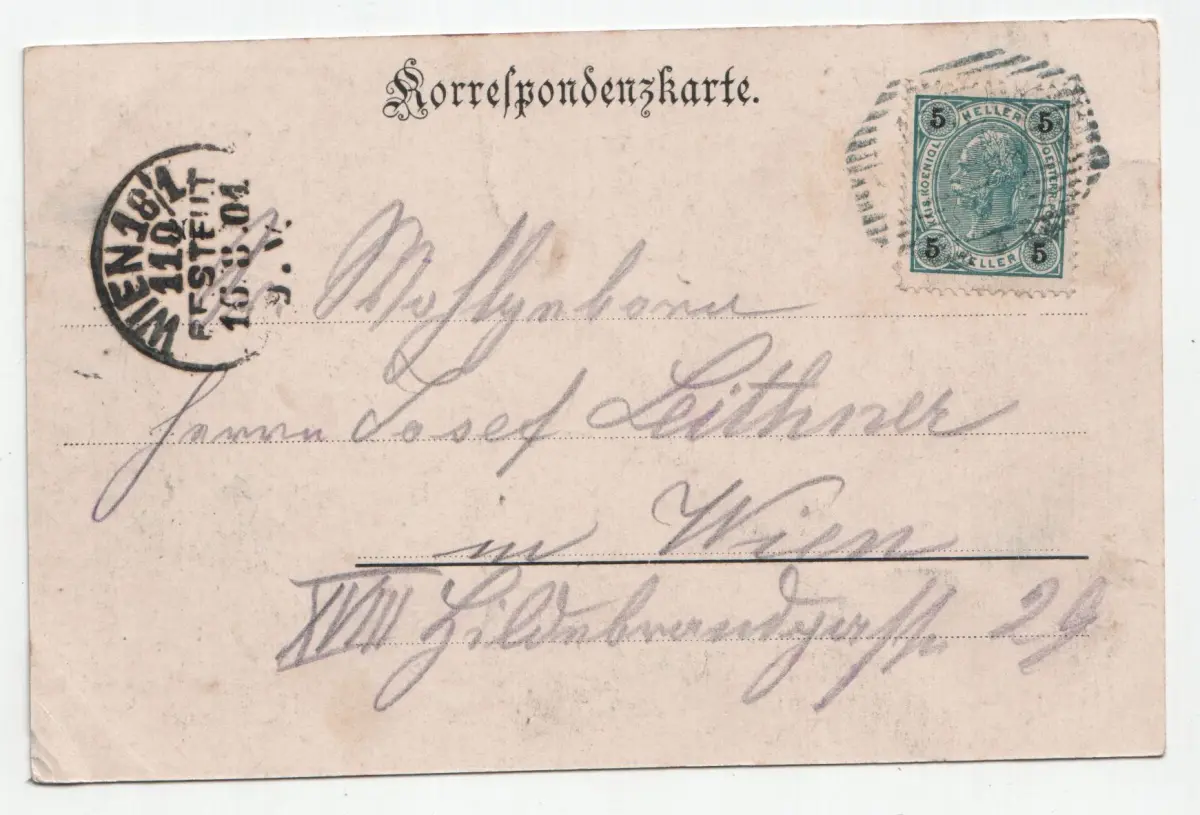 Korrespondenzkarte.
5 HELLER 5
KAIS. KOENIGL
5 HELLER 5
WIEN 18/1
110
BESTELLT
16.8.01
9.V.
Wohlgeboren
Herrn Josef Leithner
in Wien
XVIII Hildebrandgasse